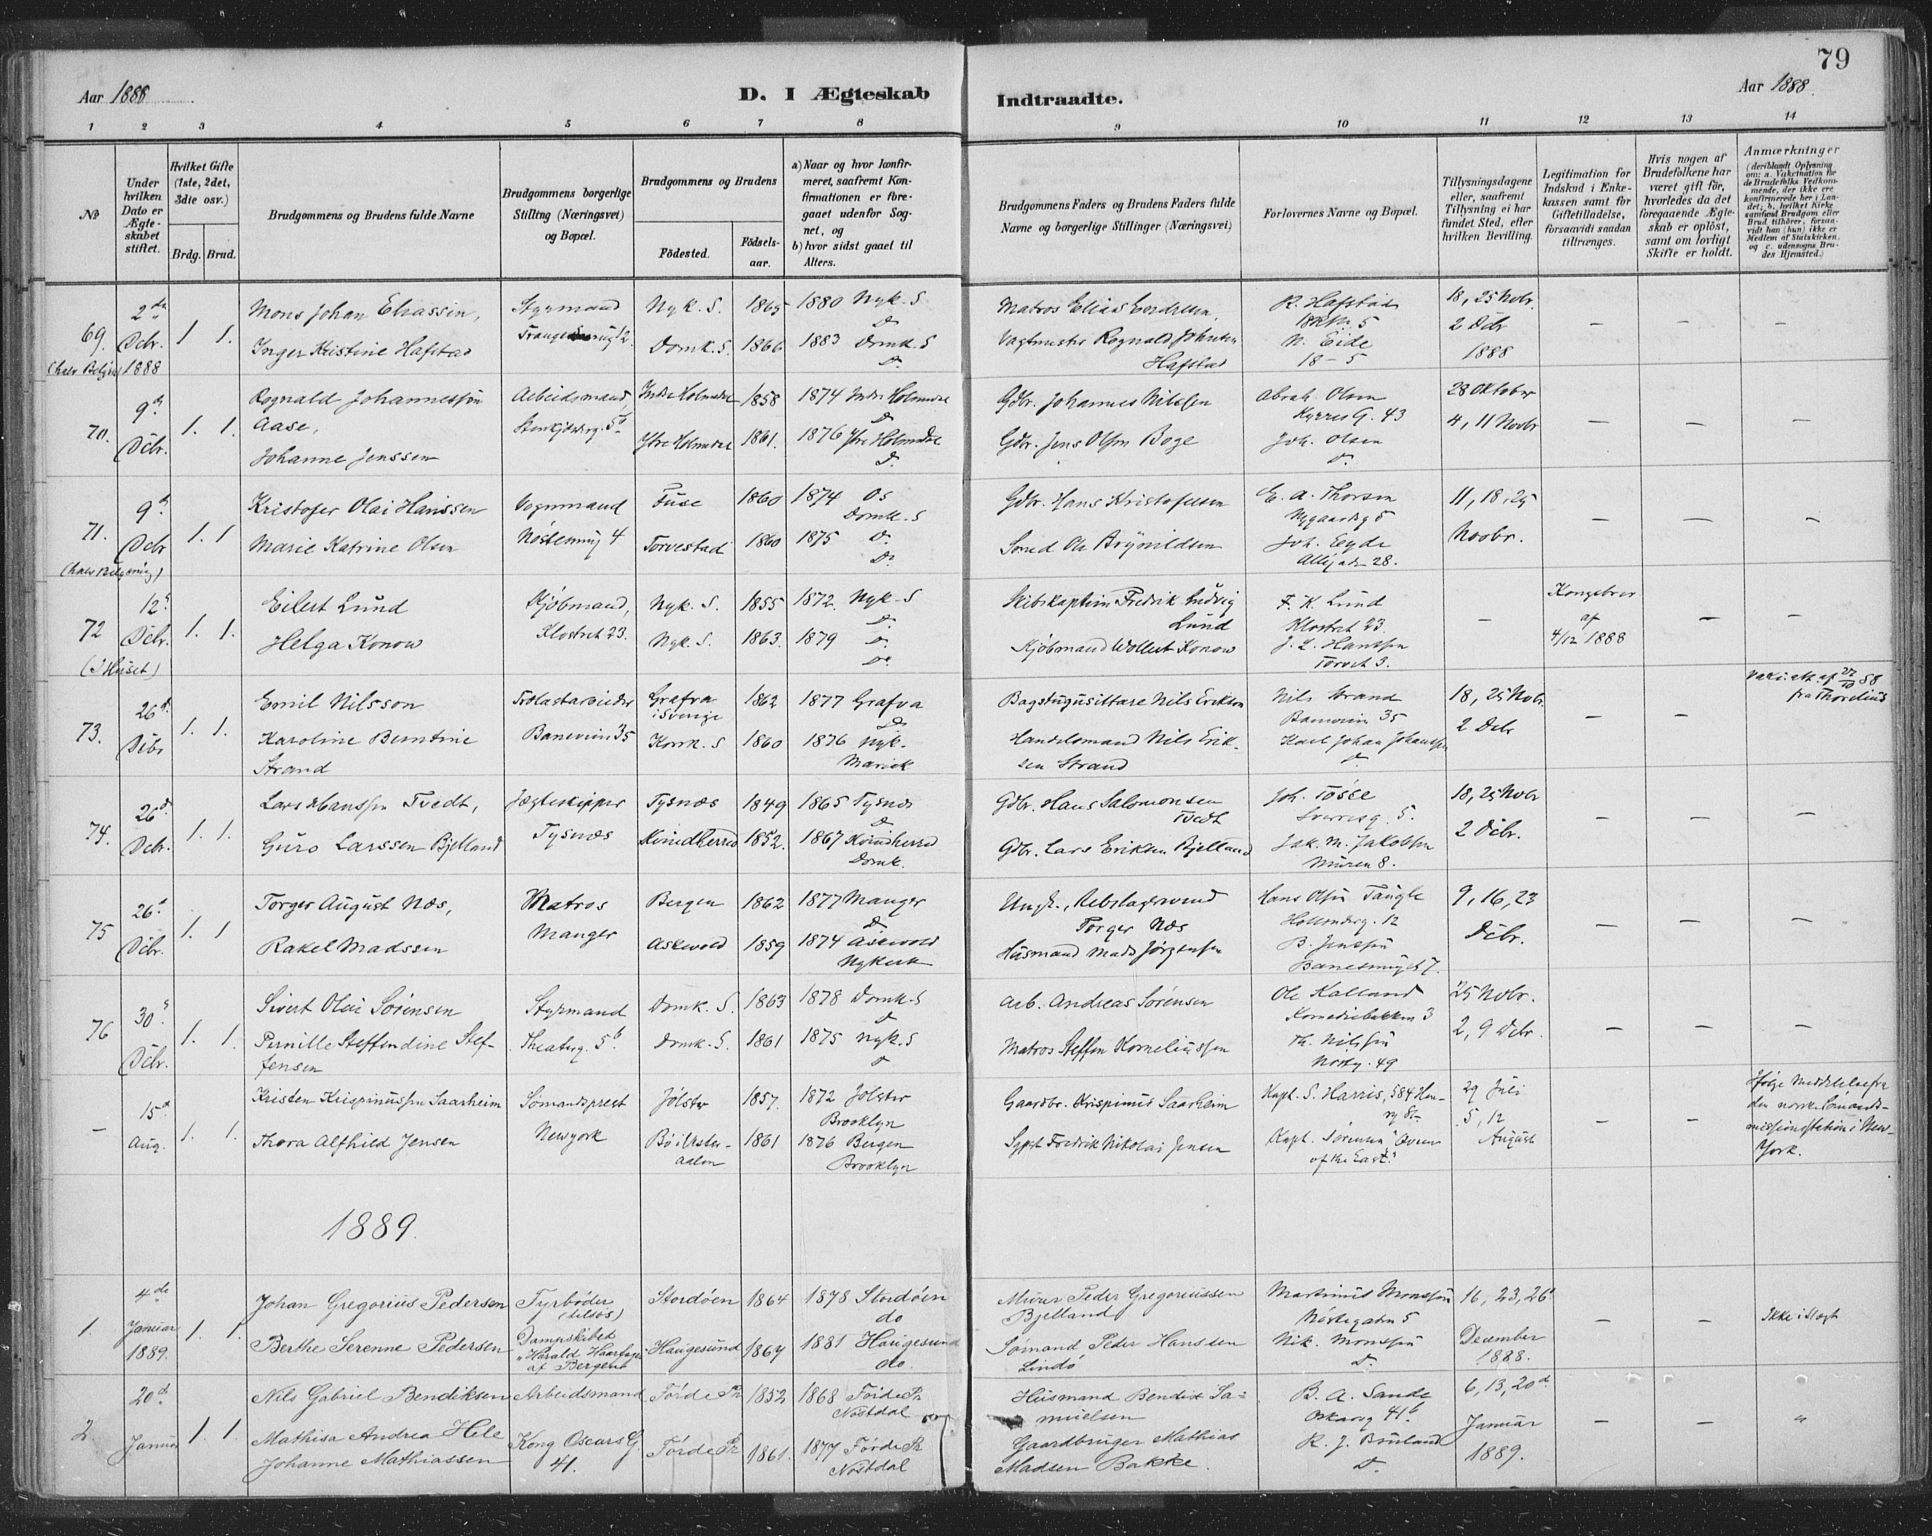 79
Aar 1888
D. I Ægteskab
Indtraadte.
Aar 1888.
1 2 3 4 5 6 7 8 9 10 11 12 13 14
No
Under hvilken Dato er Ægteskabet stiftet.
Hvilket Gifte (1ste, 2det, 3die osv.)
Brdg. Brud.
Brudgommens og Brudens fulde Navne
Brudgommens borgerlige Stilling (Næringsvei) og Bopæl.
Brudgommens og Brudens
Fødested.
Fødselsaar.
a) Naar og hvor konfirmeret, saafremt Konfirmationen er foregaaet udenfor Sognet, og
b) hvor sidst gaaet til Alters.
Brudgommens Faders og Brudens Faders fulde Navne og borgerlige Stillinger (Næringsvei)
Forlovernes Navne og Bopæl.
Tillysningsdagene eller, saafremt Tillysning ei har fundet Sted, efter hvilken Bevilling.
Legitimation for Indskud i Enkekassen samt for Giftetilladelse, forsaavidt saadan tiltrænges.
Hvis nogen af Brudefolkene har været gift før, hvorledes da det foregaaende Ægteskab er opløst, samt om lovligt Skifte er holdt.
Anmærkninger
(deriblandt Oplysning om: a. Vakcination for de Brudefolks Vedkommende, der ikke ere konfirmerede her i Landet; b. hvilket Kirkesamfund Brudgom eller Brud tilhører, forsaavidt han (hun) ikke er Medlem af Statskirken, og c. udensogns Brudes Hjemsted.)
69. 2den Dcbr. 1888 1 1. Mons Johan Eliassen, Styrmand Nyk. S. 1865 1880 Nyk. S
Do
Inger Kristine Hafstad Domk. S. 1866 1883 Domk. S
Do
Matros Elias Endresen, R. Hafstad 18, 25 Novbr.
Vagtmester Rognald Johnsen Hafstad N. Eide 2 Dcbr 1888
70. 9de Dcbr. 1. 1. Rognald Johannessøn Aase, Arbeidsmand, Indre Holmedal 1858 1874 Indre Holmedal
Do
Johanne Jenssen Ytre Holmedal 1861. 1876 Ytre Holmedal
Do
Gdbr. Johannes Nilssen Abrah. Olsen 28 Oktober
Gdbr. Jens Olsen Boge Joh. Olsen 4, 11 Novbr
71. 9de Dcbr 1. 1 Kristofer Olai Hanssen Vognmand Fuse 1860 1874 Os
Domk. S
Marie Katrine Olsen 4 Torvestad 1860 1875 Do
Do
Gdbr. Hans Kristofersen E. A. Thorsen 11, 18, 25
Smed Ole Brynildsen Joh. Eyde Novbr.
72 12te Dcbr. 1. 1. Eilert Lund Kjøbmand, Nyk. S. 1855 1872. Nyk. S
(I Huset) Helga Konow Klostret 23. Nyk. S. 1863. 1879 Do
Do
Skibskaptein Fredrik Ludvig Lund F. K. Lund Klostret 23. – Kongebrev af 4/12 1888
Kjøbmand Wollert Konow J. L. Torvet 3.
73. 26de Dcbr 1. 1. Emil Nilsson Grafva i Sverige 1862 1877 Grafva
Do
Karoline Berntine Strand Baneveien 35 Korsk. S 1860 1876 Nyk.
Mariek
Bagstugusittare Nils Erikson Nils Strand 18, 25 Novbr.
Handelsmand Nils Eriksen Strand Karl Johan Johanssen 2 Dcbr
74. 26de Dcbr. 1. 1. Lars Hanssen Tvedt, Jægteskipper Tysnæs 1849 1865 Tysnæs
Do
Guro Larssen Bjelland Tysnæs Kvindherred 1852. 1867 Kvindherred
Domk.
Gdbr. Hans Salomonsen Tvedt Joh. Tøsse Sverresg. 5. 18, 25 Novbr
Gdbr. Lars Eriksen Bjelland Jak. M. Jakobsen Muren 8. 2 Dcbr.
75 26de Dcbr. 1. 1 Torger August Næs, Matros Bergen 1862 1877 Manger
Do
Rakel Madssen Manger Askevold 1859 1874 Askevold
Nykirk
Ungk., Rebslagersvend Torger Næs Hans Olsen 9, 16, 23
Husmand Mads Jørgensen B. Jenssen Dcbr.
76 30te Dcbr. 1. 1. Sivert Olai Sørensen Styrmand Domk. S. 1863 1878 Domk. S
Do
Pernille Steffendine Steffensen Theaterg. 5b Domk. S. 1861 1875 Nyk. S
Do
Arb. Andreas Sørensen Ole Kalland Komediebakken 3 25 Novbr.
Matros Steffen Korneliussen Th. Nilssen 2, 9 Dcbr.
– 15de Aug. 1. 1. Kristen Krispinussen Saarheim Sømandsprest Jølster 1857. 1872 Jølster
Brooklyn
Thora Alfhild Jensen Newyork 1861 1876 Bergen
Brooklyn
Gaardbr. Krispinus Saarheim Kapt. S. Harris, 584 Henry St. 29 Juli
Fredrik Nikolai Jensen Kapt. Sørensen "Queen of the East." 5, 12 August
Ifølge Meddelelse fra den norske Sømandsmissionsstation i New-York.
1889.
1. 4de Januar 1889. 1. 1. Johan Gregorius Pedersen Fyrbøder (tilsøs) Stordøen 1864 1878 Stordøen
do
Berthe Serenne Pedersen Dampskibet "Harald Haarfagre" af Bergen Haugesund 1864 1881 Haugesund
do.
Murer Peder Gregoriussen Bjelland Martinus Monssen Nøstegaten 5 16, 23, 26
Sømand Peder Hanssen Lindø Nik. Monssen Do. December 1888. Ikke i Slægt
2. 20de Januar 1 1 Nils Gabriel Bendiksen Arbeidsmand Førde Pr 1852 1868 Førde Pr
Nostdal
Mathisa Andrea Hele Johanne Mathiassen Kong Oscars G. 41. Førde Pr 1861. 1877 Førde Pr
Nostdal
Husmand Bendix Samuelsen B. A. Sande 41b 6, 13, 20de
Gaardbruger Mathias Madsen Bakke. R. J. Bruland Do. Januar 1889.